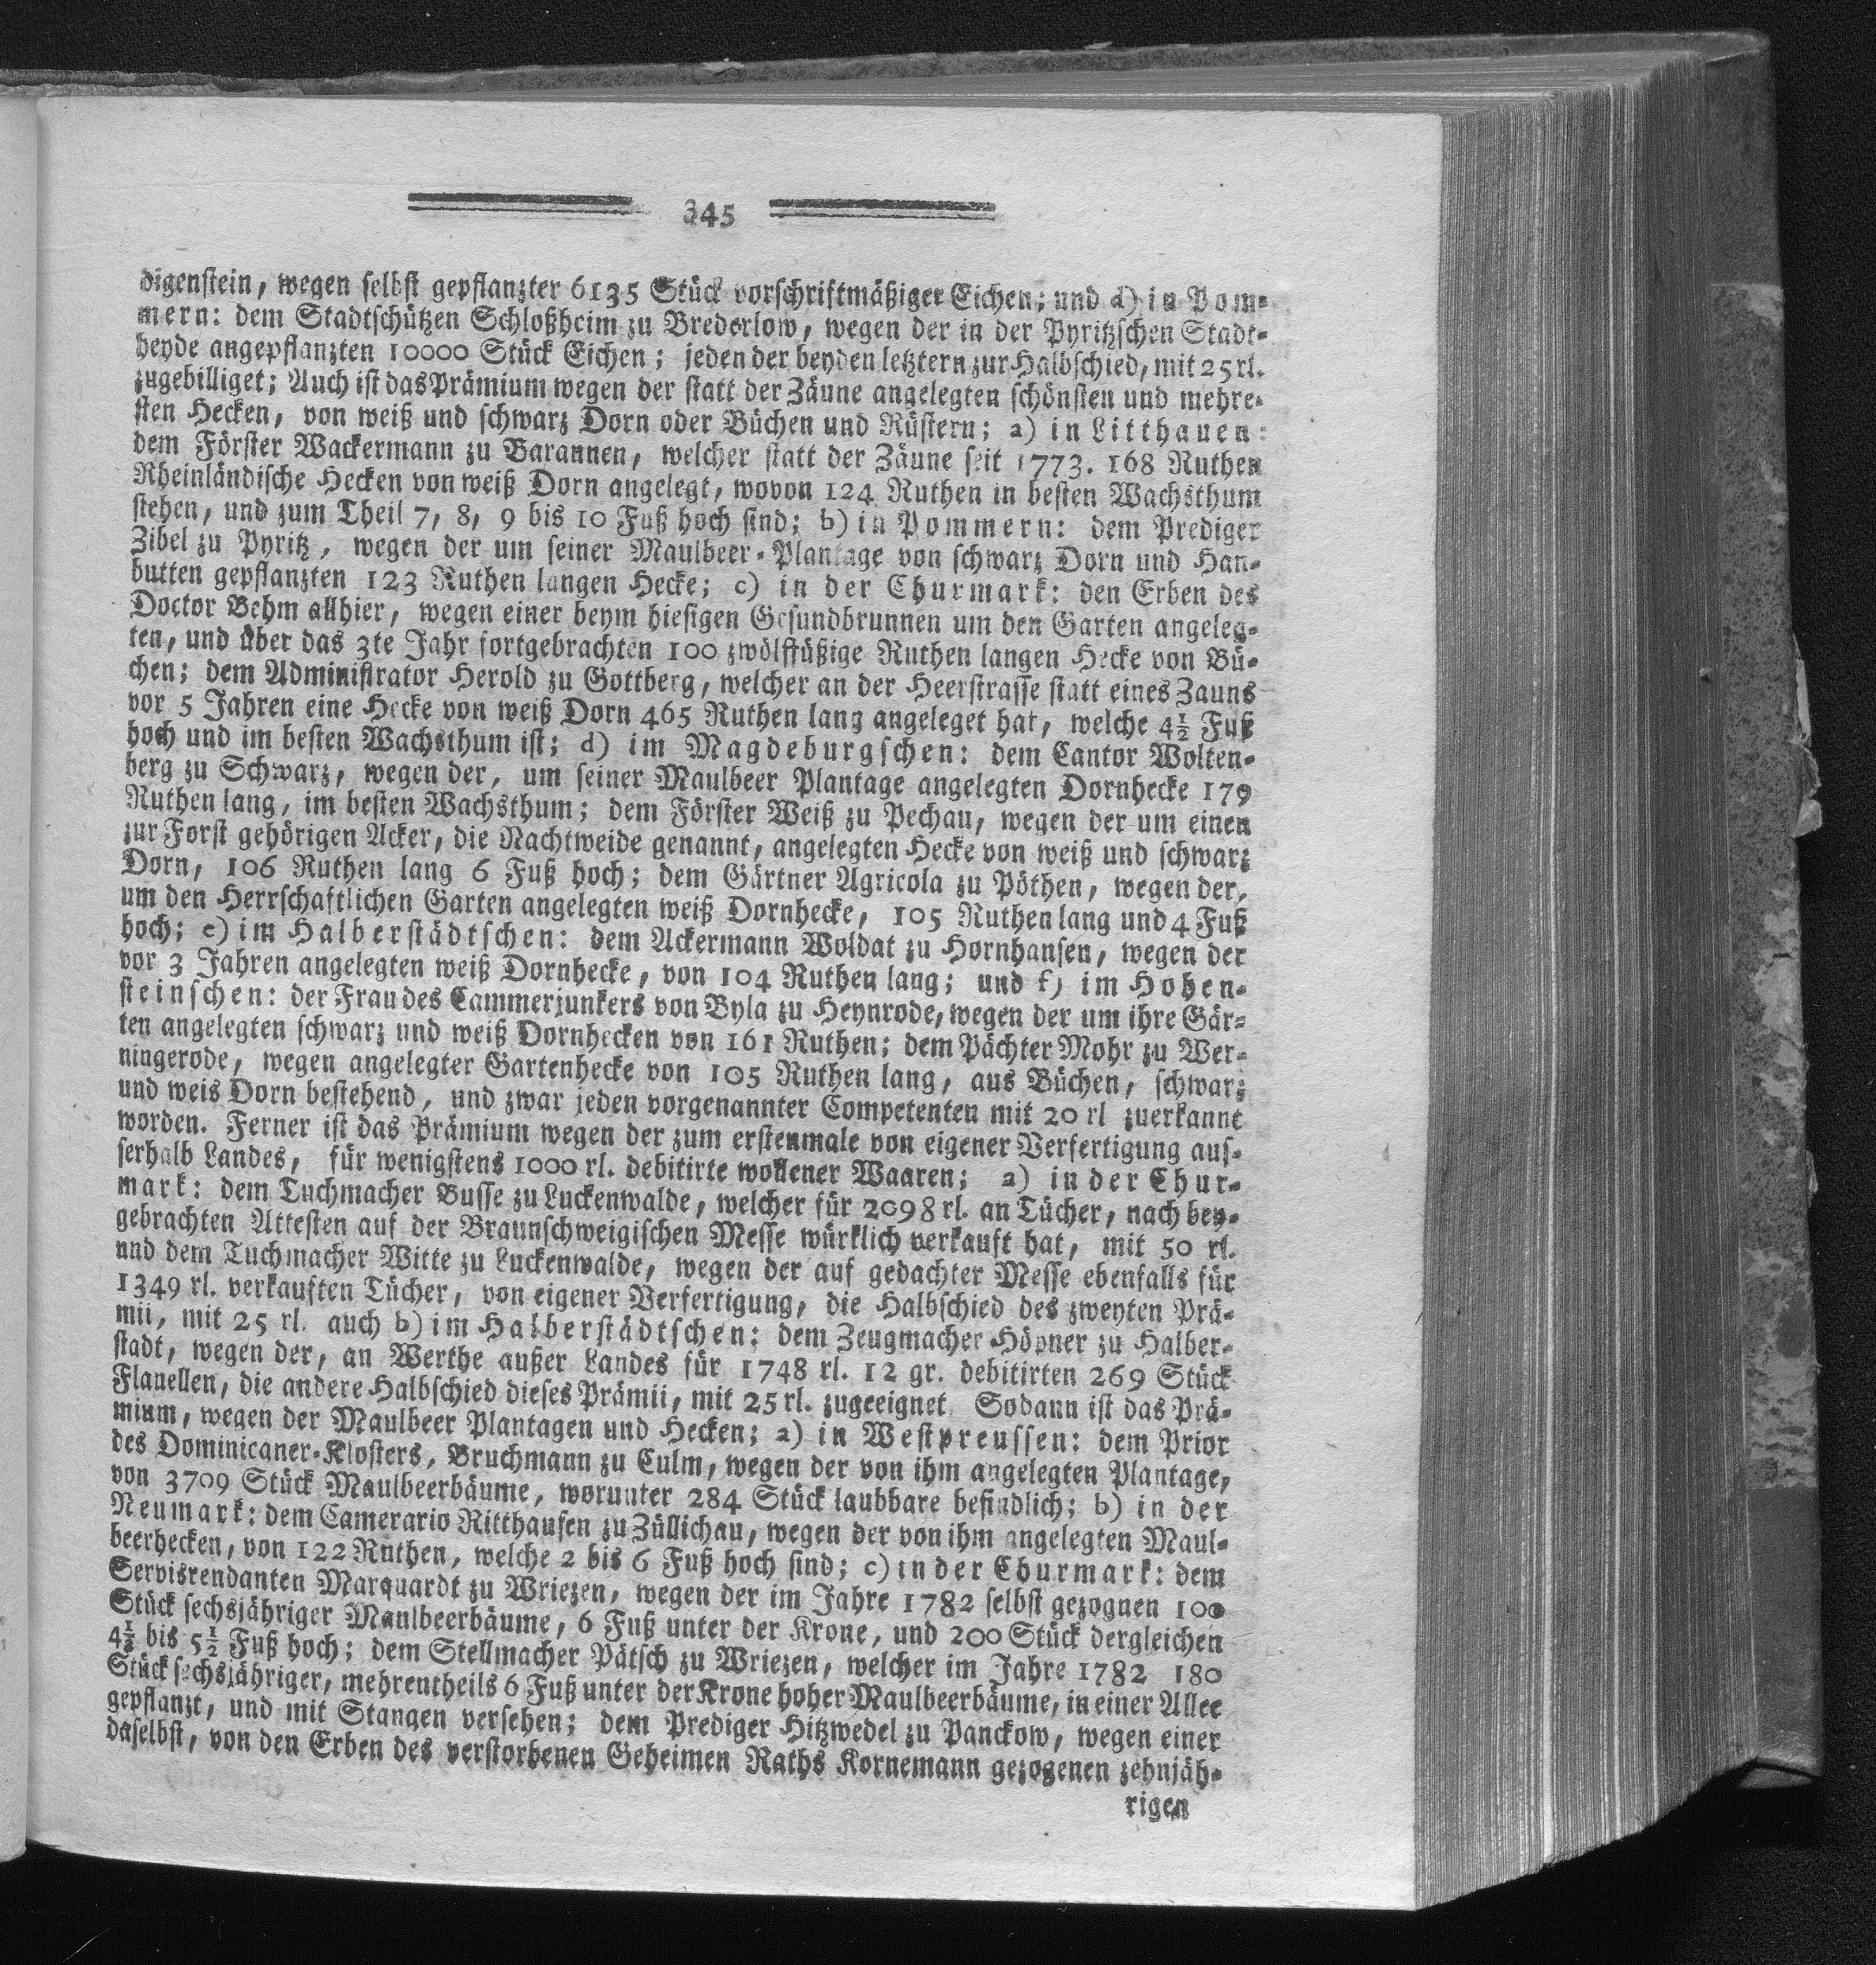 345
digenstein, wegen selbst gepflanzter 6135 Stück vorschriftmäßiger Eichen; und d) in Pom-
mern: dem Stadtschützen Schloßheim zu Brederlow, wegen der in der Pyritzschen Stadt-
heyde angepflanzten 10000 Stück Eichen; jeden der beyden letztern zur Halbschied, mit 25 rl.
zugebilliget; Auch ist das Prämium wegen der statt der Zäune angelegten schönsten und mehre-
sten Hecken, von weiß und schwarz Dorn oder Büchen und Rüstern; a) in Litthauen:
dem Förster Wackermann zu Barannen, welcher statt der Zäune seit 1773. 168 Ruthen
Rheinländische Hecken von weiß Dorn angelegt, wovon 124 Ruthen in besten Wachsthum
stehen, und zum Theil 7, 8, 9 bis 10 Fuß hoch sind; b) in Pommern: dem Prediger
Zibel zu Pyritz, wegen der um seiner Maulbeer-Plantage von schwarz Dorn und Han-
butten gepflanzten 123 Ruthen langen Hecke; c) in der Churmark: den Erben des
Doctor Behm allhier, wegen einer beym hiesigen Gesundbrunnen um den Garten angeleg-
ten, und über das 3te Jahr fortgebrachten 100 zwölffüßige Ruthen langen Hecke von Bü-
chen; dem Administrator Herold zu Gottberg, welcher an der Heerstrasse statt eines Zauns
vor 5 Jahren eine Hecke von weiß Dorn 465 Ruthen lang angeleget hat, welche 4½ Fuß
hoch und im besten Wachsthum ist; d) im Magdeburgschen: dem Cantor Wolten-
berg zu Schwarz, wegen der, um seiner Maulbeer Plantage angelegten Dornhecke 179
Ruthen lang, im besten Wachsthum; dem Förster Weiß zu Pechau, wegen der um einen
zur Forst gehörigen Acker, die Nachtweide genannt, angelegten Hecke von weiß und schwarz
Dorn, 106 Ruthen lang 6 Fuß hoch; dem Gärtner Agricola zu Pöthen, wegen der,
um den Herrschaftlichen Garten angelegten weiß Dornhecke, 105 Ruthen lang und 4 Fuß
hoch; e) im Halberstädtschen: dem Ackermann Woldat zu Hornhansen, wegen der
vor 3 Jahren angelegten weiß Dornhecke, von 104 Ruthen lang; und f) im Hohen-
steinschen: der Frau des Cammerjunkers von Byla zu Heynrode, wegen der um ihre Gär-
ten angelegten schwarz und weiß Dornhecken von 161 Ruthen; dem Pächter Mohr zu Wer-
ningerode, wegen angelegter Gartenhecke von 105 Ruthen lang, aus Büchen, schwarz
und weis Dorn bestehend, und zwar jeden vorgenannter Competenten mit 20 rl zuerkannt
worden. Ferner ist das Prämium wegen der zum erstenmale von eigener Verfertigung aus-
serhalb Landes, für wenigstens 1000 rl. debitirte wollener Waaren; a) in der Chur-
mark: dem Tuchmacher Busse zu Luckenwalde, welcher für 2098 rl. an Tücher, nach bey-
gebrachten Attesten auf der Braunschweigischen Messe würklich verkauft hat, mit 50 rl.
und dem Tuchmacher Witte zu Luckenwalde, wegen der auf gedachter Messe ebenfalls für
1349 rl. verkauften Tücher, von eigener Verfertigung, die Halbschied des zweyten Prä-
mii, mit 25 rl. auch b) im Halberstädtschen: dem Zeugmacher Höpner zu Halber-
stadt, wegen der, an Werthe außer Landes für 1748 rl. 12 gr. debitirten 269 Stück
Flanellen, die andere Halbschied dieses Prämii, mit 25 rl. zugeeignet. Sodann ist das Prä-
mium, wegen der Maulbeer Plantagen und Hecken; a) in Westpreussen: dem Prior
des Dominicaner-Klosters, Bruchmann zu Culm, wegen der von ihm angelegten Plantage,
von 3709 Stück Maulbeerbäume, worunter 284 Stück laubbare befindlich; b) in der
Neumark: dem Camerario Ritthausen zu Züllichau, wegen der von ihm angelegten Maul-
beerhecken, von 122 Ruthen, welche 2 bis 6 Fuß hoch sind; c) in der Churmark: dem
Servisrendanten Marquardt zu Wriezen, wegen der im Jahre 1782 selbst gezognen 100
Stück sechsjähriger Maulbeerbäume, 6 Fuß unter der Krone, und 200 Stück dergleichen
4½ bis 5½ Fuß hoch; dem Stellmacher Pätsch zu Wriezen, welcher im Jahre 1782 180
Stück sechsjähriger, mehrentheils 6 Fuß unter der Krone hoher Maulbeerbäume, in einer Allee
gepflanzt, und mit Stangen versehen; dem Prediger Hitzwedel zu Panckow, wegen einer
daselbst, von den Erben des verstorbenen Geheimen Raths Kornemann gezogenen zehnjäh-
rigen